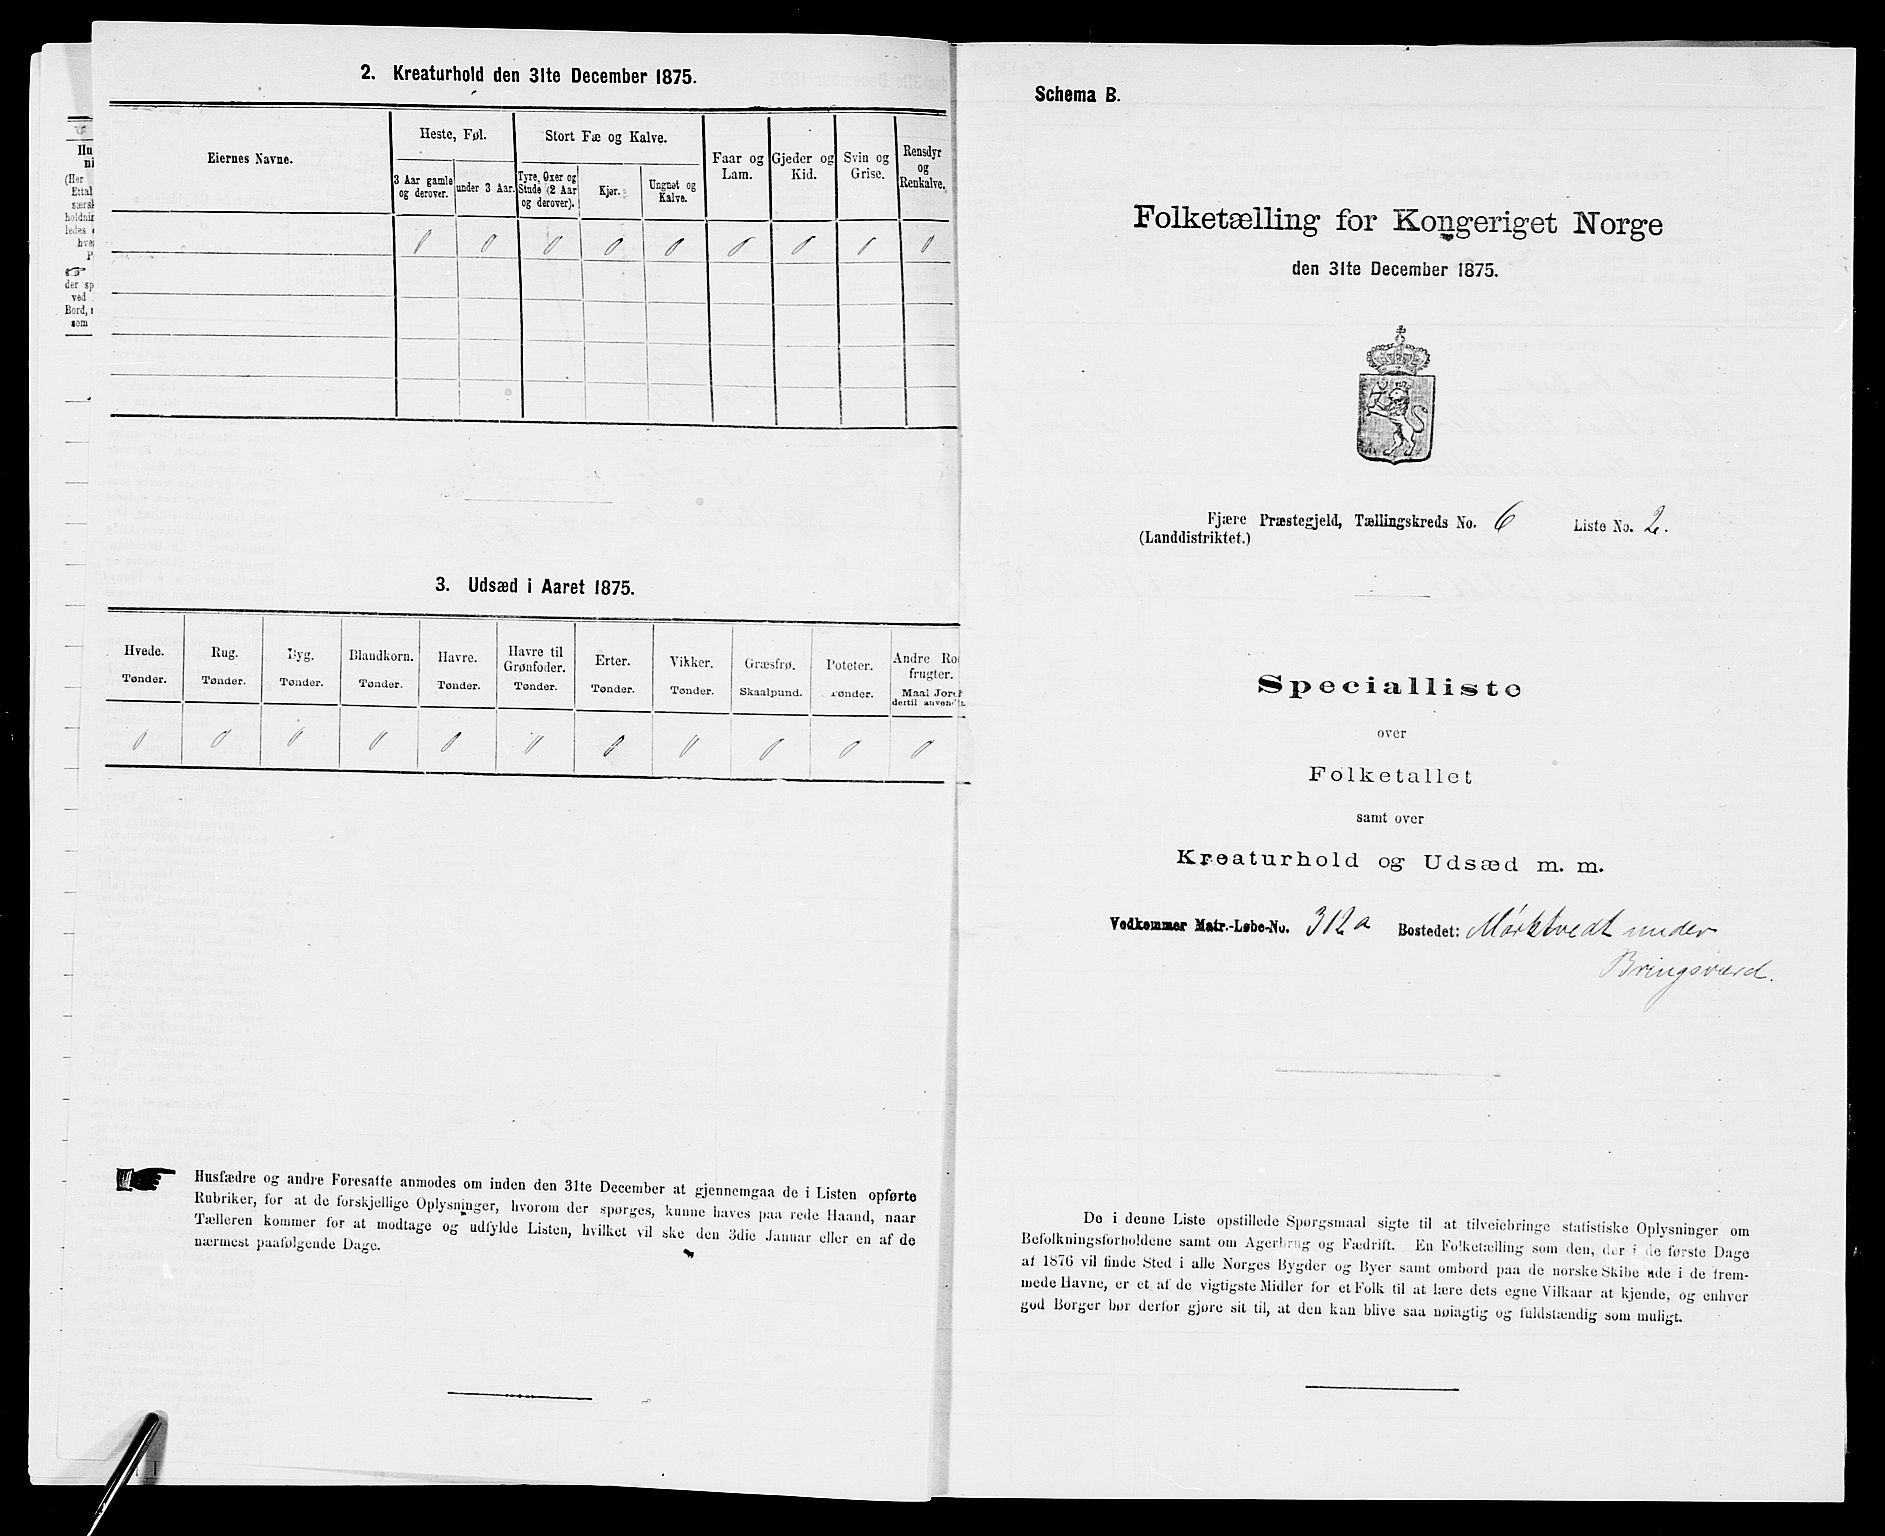 2. Kreaturhold den 31te December 1875.
Eiernes Navne.
Heste, Føl.
3 Aar gamle og derover.
under 3 Aar.
Stort Fæ og Kalve.
Tyre, Oxer og Stude (2 Aar og derover).
Kjør.
Ungnøt og Kalve.
Faar og Lam.
Gjeder og Kid.
Svin og Grise.
Rensdyr og Renkalve.
0 0 0 0 0 0 0 0 0
3. Udsæd i Aaret 1875.
Hvede. Tønder.
Rug. Tønder.
Byg. Tønder.
Blandkorn. Tønder.
Havre. Tønder.
Havre til Grønfoder. Tønder.
Erter. Tønder.
Vikker. Tønder.
Græsfrø. Skaalpund.
Poteter. Tønder.
Andre Ro
frugter.
Maal Jord
dertil anvend
0 0 0 0 0 0 0 0 0 0 0
Husfædre og andre Foresatte anmodes om inden den 31te December at gjennemgaa de i Listen opførte
Rubriker, for at de forskjellige Oplysninger, hvorom der spørges, kunne haves paa rede Haand, naar
Tælleren kommer for at modtage og udfylde Listen, hvilket vil ske den 3die Januar eller en af de
nærmest paafølgende Dage.
Schema B.
Folketælling for Kongeriget Norge
den 31te December 1875.
Fjære Præstegjeld, Tællingskreds No. 6 Liste No. 2.
(Landdistriktet.)
Specialliste
over
Folketallet
samt over
Kreaturhold og Udsæd m. m.
Vedkommer Matr.-Løbe-No. 312a Bostedet: Mørktvedt under
Bringsværd.
De i denne Liste opstillede Spørgsmaal sigte til at tilveiebringe statistiske Oplysninger om
Befolkningsforholdene samt om Agerbrug og Fædrift. En Folketælling som den, der i de første Dage
af 1876 vil finde Sted i alle Norges Bygder og Byer samt ombord paa de norske Skibe ude i de frem-
mede Havne, er et af de vigtigste Midler for et Folk til at lære dets egne Vilkaar at kjende, og enhver
god Borger bør derfor gjøre sit til, at den kan blive saa nøiagtig og fuldstændig som muligt.